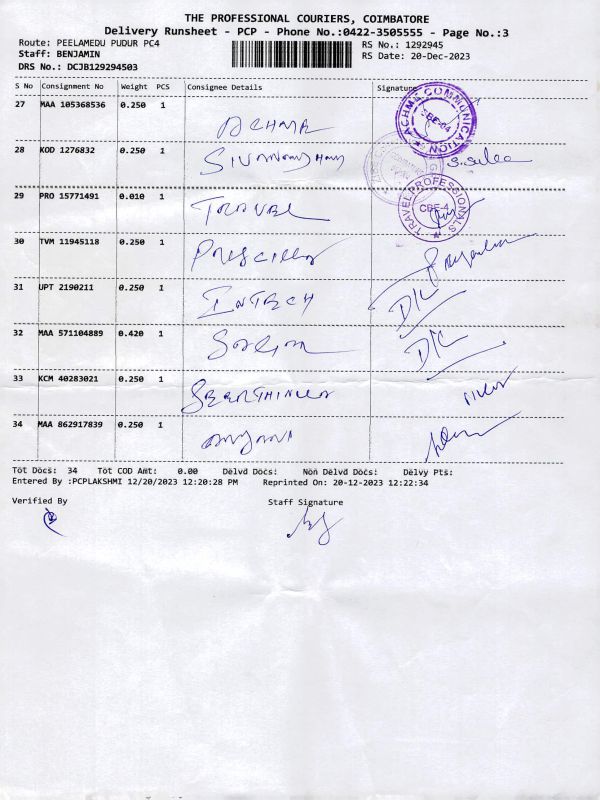 THE PROFESSIONAL COURIERS, COIMBATORE
Delivery Runsheet - PCP - Phone No.:0422-3505555 - Page No.:3
Route: PEELAMEDU PUDUR PC4 RS No.: 1292945
Staff: BENJAMIN RS Date: 20-Dec-2023
DRS No.: DCJB129294503
S No Consignment No Weight PCS Consignee Details Signature
27 MAA 105368536 0.250 1 ACHMA
ACHMA COMMUNICATION CBE-04
28 KOD 1276832 0.250 1
29 PRO 15771491 0.010 1 TRAVEL
TRAVEL PROFESSIONALS CBE-4
30 TVM 11945118 0.250 1 PRISCILLA
31 UPT 2190211 0.250 1 INTECH D/C
32 MAA 571104889 0.420 1 D/C
33 KCM 40283021 0.250 1
34 MAA 862917839 0.250 1
Tot Docs: 34 Tot COD Amt: 0.00 Delvd Docs: Non Delvd Docs: Delvy Pts:
Entered By :PCPLAKSHMI 12/20/2023 12:20:28 PM Reprinted On: 20-12-2023 12:22:34
Verified By Staff Signature